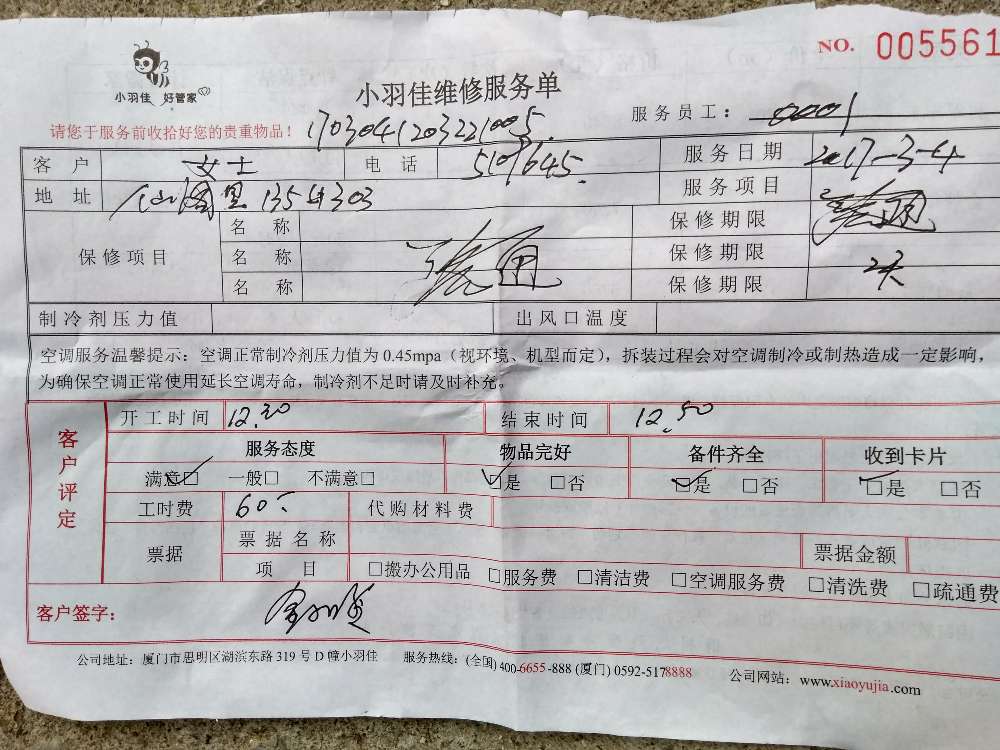 NO. 005561
小羽佳 好管家
小羽佳维修服务单
请您于服务前收拾好您的贵重物品！ 1703041203221005 服务员工：0001
客户 女士 电话 5109645 服务日期 2017-3-4
地址 仙阁里135#303 服务项目
保修项目 名称 保修期限
名称 保修期限
名称 保修期限
制冷剂压力值 出风口温度
空调服务温馨提示：空调正常制冷剂压力值为 0.45mpa（视环境、机型而定），拆装过程会对空调制冷或制热造成一定影响，
为确保空调正常使用延长空调寿命，制冷剂不足时请及时补充。
客户评定
开工时间 12.20 结束时间 12.50
服务态度 物品完好 备件齐全 收到卡片
满意☑ 一般□ 不满意□ ☑是 □否 ☑是 □否 ☑是 □否
工时费 60.- 代购材料费
票据 票据名称 票据金额
项目 □搬办公用品 □服务费 □清洁费 □空调服务费 □清洗费 □疏通费
客户签字：
公司地址：厦门市思明区湖滨东路 319 号 D 幢小羽佳 服务热线：(全国) 400-6655-888 (厦门) 0592-5178888 公司网站：www.xiaoyujia.com